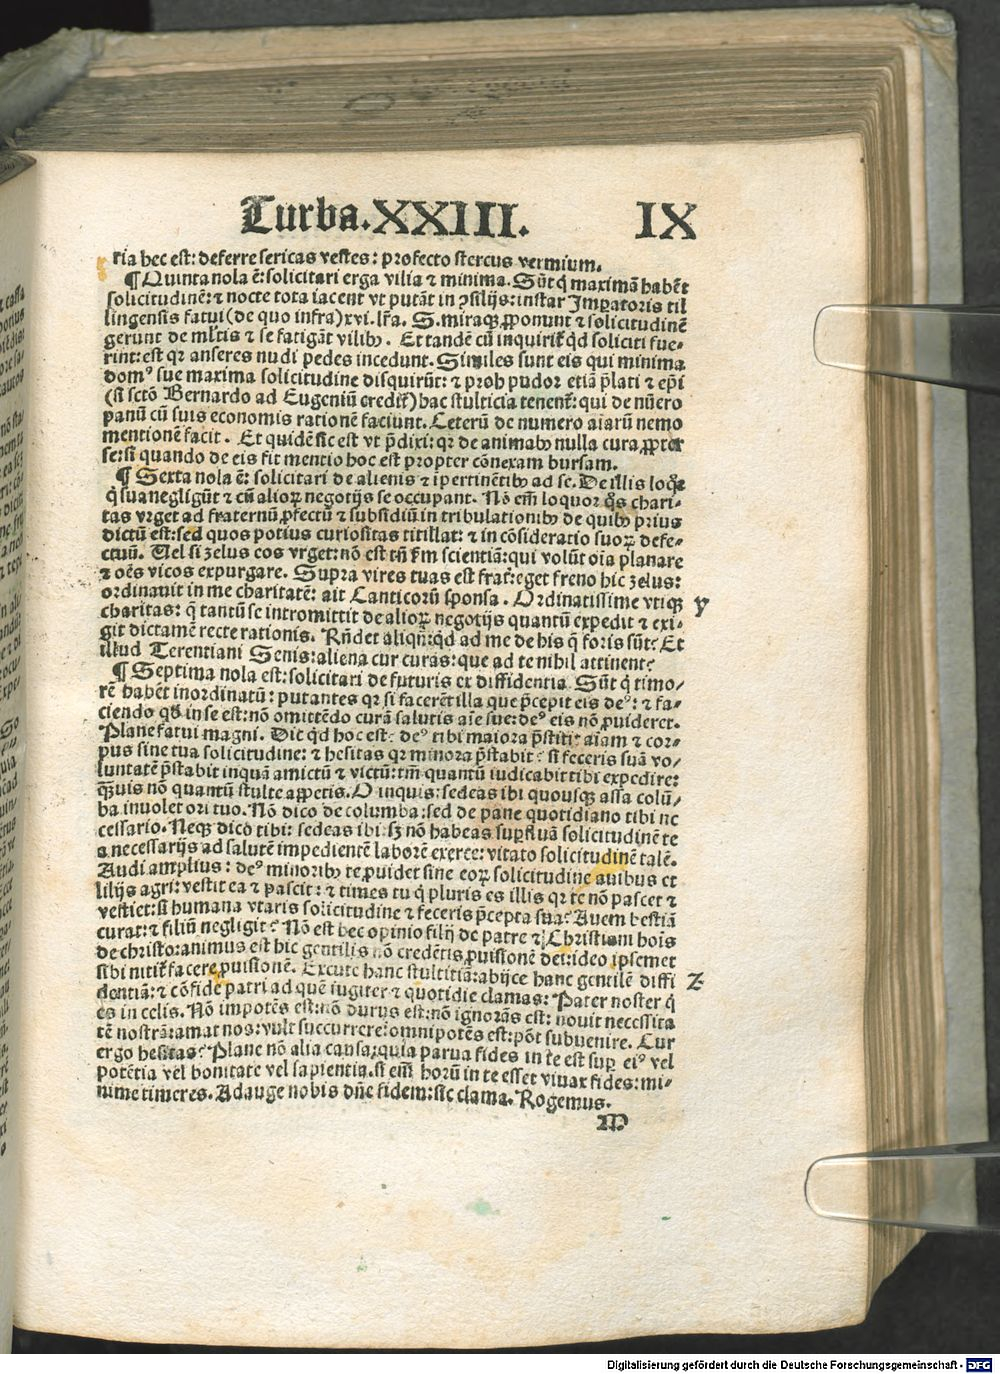 Turba.XXIII. IX
ria hec est: deferre sericas vestes: profecto stercus vermium.
¶ Quinta nola ē: solicitari erga vilia ⁊ minima. Sūt q̇ maximā habēt
solicitudinē: ⁊ nocte tota iacent vt putāt in ꝯsilijs: instar Imꝑatoris til
lingensis fatui (de quo infra) xvi. lr̄a. S. miraqꝫ ꝓponunt ⁊ solicitudinē
gerunt de ml̄tis ⁊ se fatigāt vilibꝰ. Et tandē cū inquirit̄ qd soliciti fue-
rint: est qꝛ anseres nudi pedes incedunt. Similes sunt eis qui minima
domꝰ sue maxima solicitudine disquirūt: ⁊ proh pudor etiā p̄lati ⁊ ep̄i
(si sctō Bernardo ad Eugeniū credit̄) hac stulticia tenent̄: qui de nūero
panū cū suis economis rationē faciunt. Ceterū de numero aīarū nemo
mentionē facit. Et quidē sic est vt p̄dixi: qꝛ de animabꝰ nulla cura ꝓpter
se: si quando de eis fit mentio hoc est propter cōnexam bursam.
¶ Sexta nola ē: solicitari de alienis ⁊ īpertinētibꝰ ad se. De illis loq̄r
q̇ sua negligūt ⁊ cū alioꝝ negotijs se occupant. Nō em̄ loquor q̄s chari-
tas vrget ad fraternū ꝓfectū ⁊ subsidiū in tribulationibꝰ de quibꝰ prius
dictū est: sed quos potius curiositas titillat: ⁊ in cōsideratio suoꝝ defe-
ctuū. Uel si zelus eos vrget: nō est tn̄ ẜm scientiā: qui volūt oīa planare
⁊ oēs vicos expurgare. Supra vires tuas est frat̄: eget freno hic zelus:
ordinauit in me charitatē: ait Canticorū sponsa. Ordinatissime vtiqꝫ y
charitas: q̄ tantū se intromittit de alioꝝ negotijs quantū expedit ⁊ exi-
git dictamē recte rationis. Rn̄det aliqn̄: qd ad me de his q̄ foris sūt? Et
illud Terentiani Senis: aliena cur curas: que ad te nihil attinent?
¶ Septima nola est: solicitari de futuris ex diffidentia. Sūt q̇ timo-
rē habēt inordinatū: putantes qꝛ si facerēt illa que p̄cepit eis deꝰ: ⁊ fa-
ciendo qd̄ in se est: nō omittēdo curā salutis aīe sue: deꝰ eis nō ꝓuideret.
Plane fatui magni. Dic qd hoc est? deꝰ tibi maiora p̄stitit aīam ⁊ cor-
pus sine tua solicitudine: ⁊ hesitas qꝛ minora p̄stabit? si feceris suā vo-
luntatē p̄stabit inquā amictū ⁊ victū: tm̄ quantū iudicabit tibi expedire:
q̄uis nō quantū stulte appetis. O inquis: sedeas ibi quousqꝫ assa colū-
ba inuolet ori tuo. Nō dico de columba: sed de pane quotidiano tibi ne
cessario. Neqꝫ dico tibi: sedeas ibi: sꝫ nō habeas suꝑfluā solicitudinē te
a necessarijs ad salutē impedientē laborē exerce: vitato solicitudinē talē.
Audi amplius: deꝰ minoribꝰ te ꝓuidet sine eoꝝ solicitudine auibus et
lilijs agri: vestit ea ⁊ pascit: ⁊ times tu q̇ pluris es illis qꝛ te nō pascet ⁊
vestiet: si humana vtaris solicitudine ⁊ feceris p̄cepta sua? Auem bestiā
curat: ⁊ filiū negligit? Nō est hec opinio filij de patre ⁊ Christiani hoīs
de christo: animus est hic gentilis nō credētis ꝓuisionē dei: ideo ipsemet
sibi nitit̄ facere ꝓuisionē. Excute hanc stultitiā: abijce hanc gentilē diffi z
dentiā: ⁊ cōfide patri ad quē iugiter ⁊ quotidie clamas: Pater noster q̇
es in celis. Nō impotēs est: nō durus est: nō ignorās est: nouit necessita
tē nostrā: amat nos: vult succurrere: omnipotēs est: pōt subuenire. Cur
ergo hesitas? Plane nō alia causa: quia parua fides in te est suꝑ eiꝰ vel
potētia vel bonitate vel sapientia. si em̄ horū in te esset viuax fides: mi-
nime timeres. Adauge nobis dn̄e fidem: sic clama. Rogemus.
M
Digitalisierung gefördert durch die Deutsche Forschungsgemeinschaft - DFG